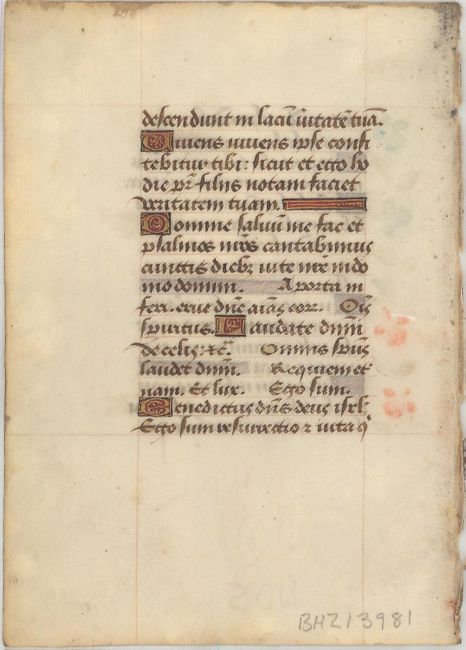 descendunt in lacū ūitatē tuā.
Vivens vivens ipse confi
tebitur tibi: sicut et ego ho
die pr̄ filiis notam faciet
veritatem tuam.
Domine salvū me fac et
psalmos nr̄os cantabimus
cunctis diebz vite nrē in do
mo domini. A porta in
feri. erue dñe aīas eor. Oīs
spiritus. Laudate dñm
de celis: xc̄. Omnis spūs
laudet dñm. Requiem et
nam. Et lux. Ego sum.
Benedictus dñs deus isrl.
Ego sum resurrectio ⁊ vita q̇
BHZ13981